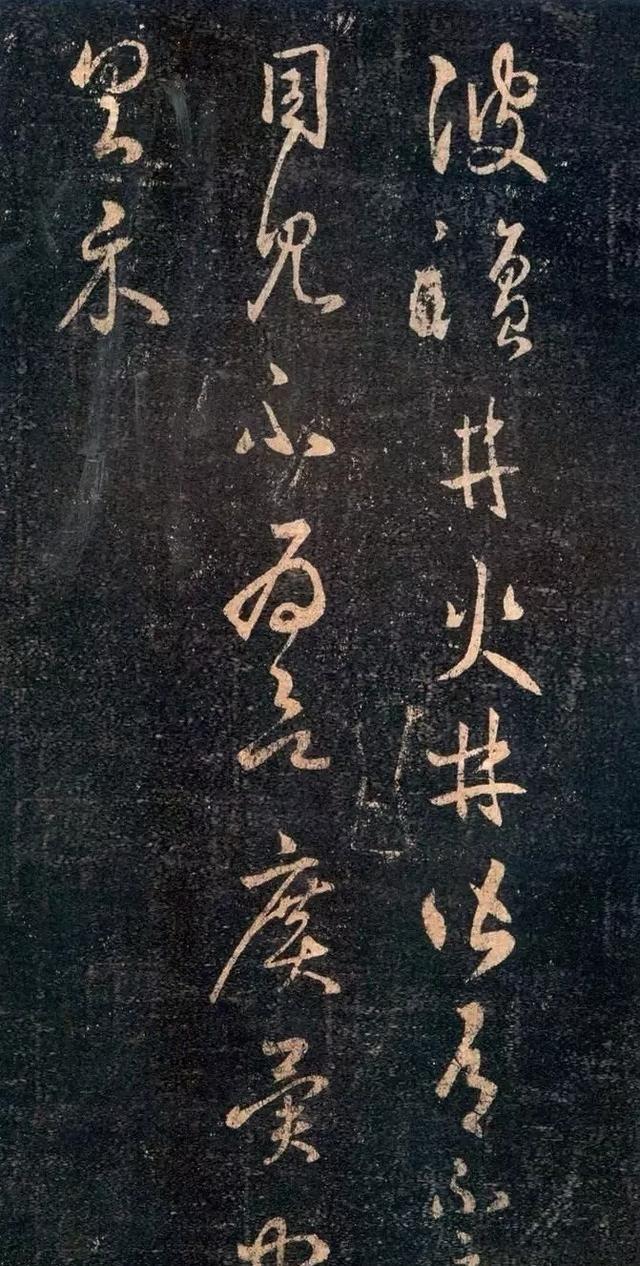 彼鹽井火井皆有不
目見不為欲廣異聞
具示